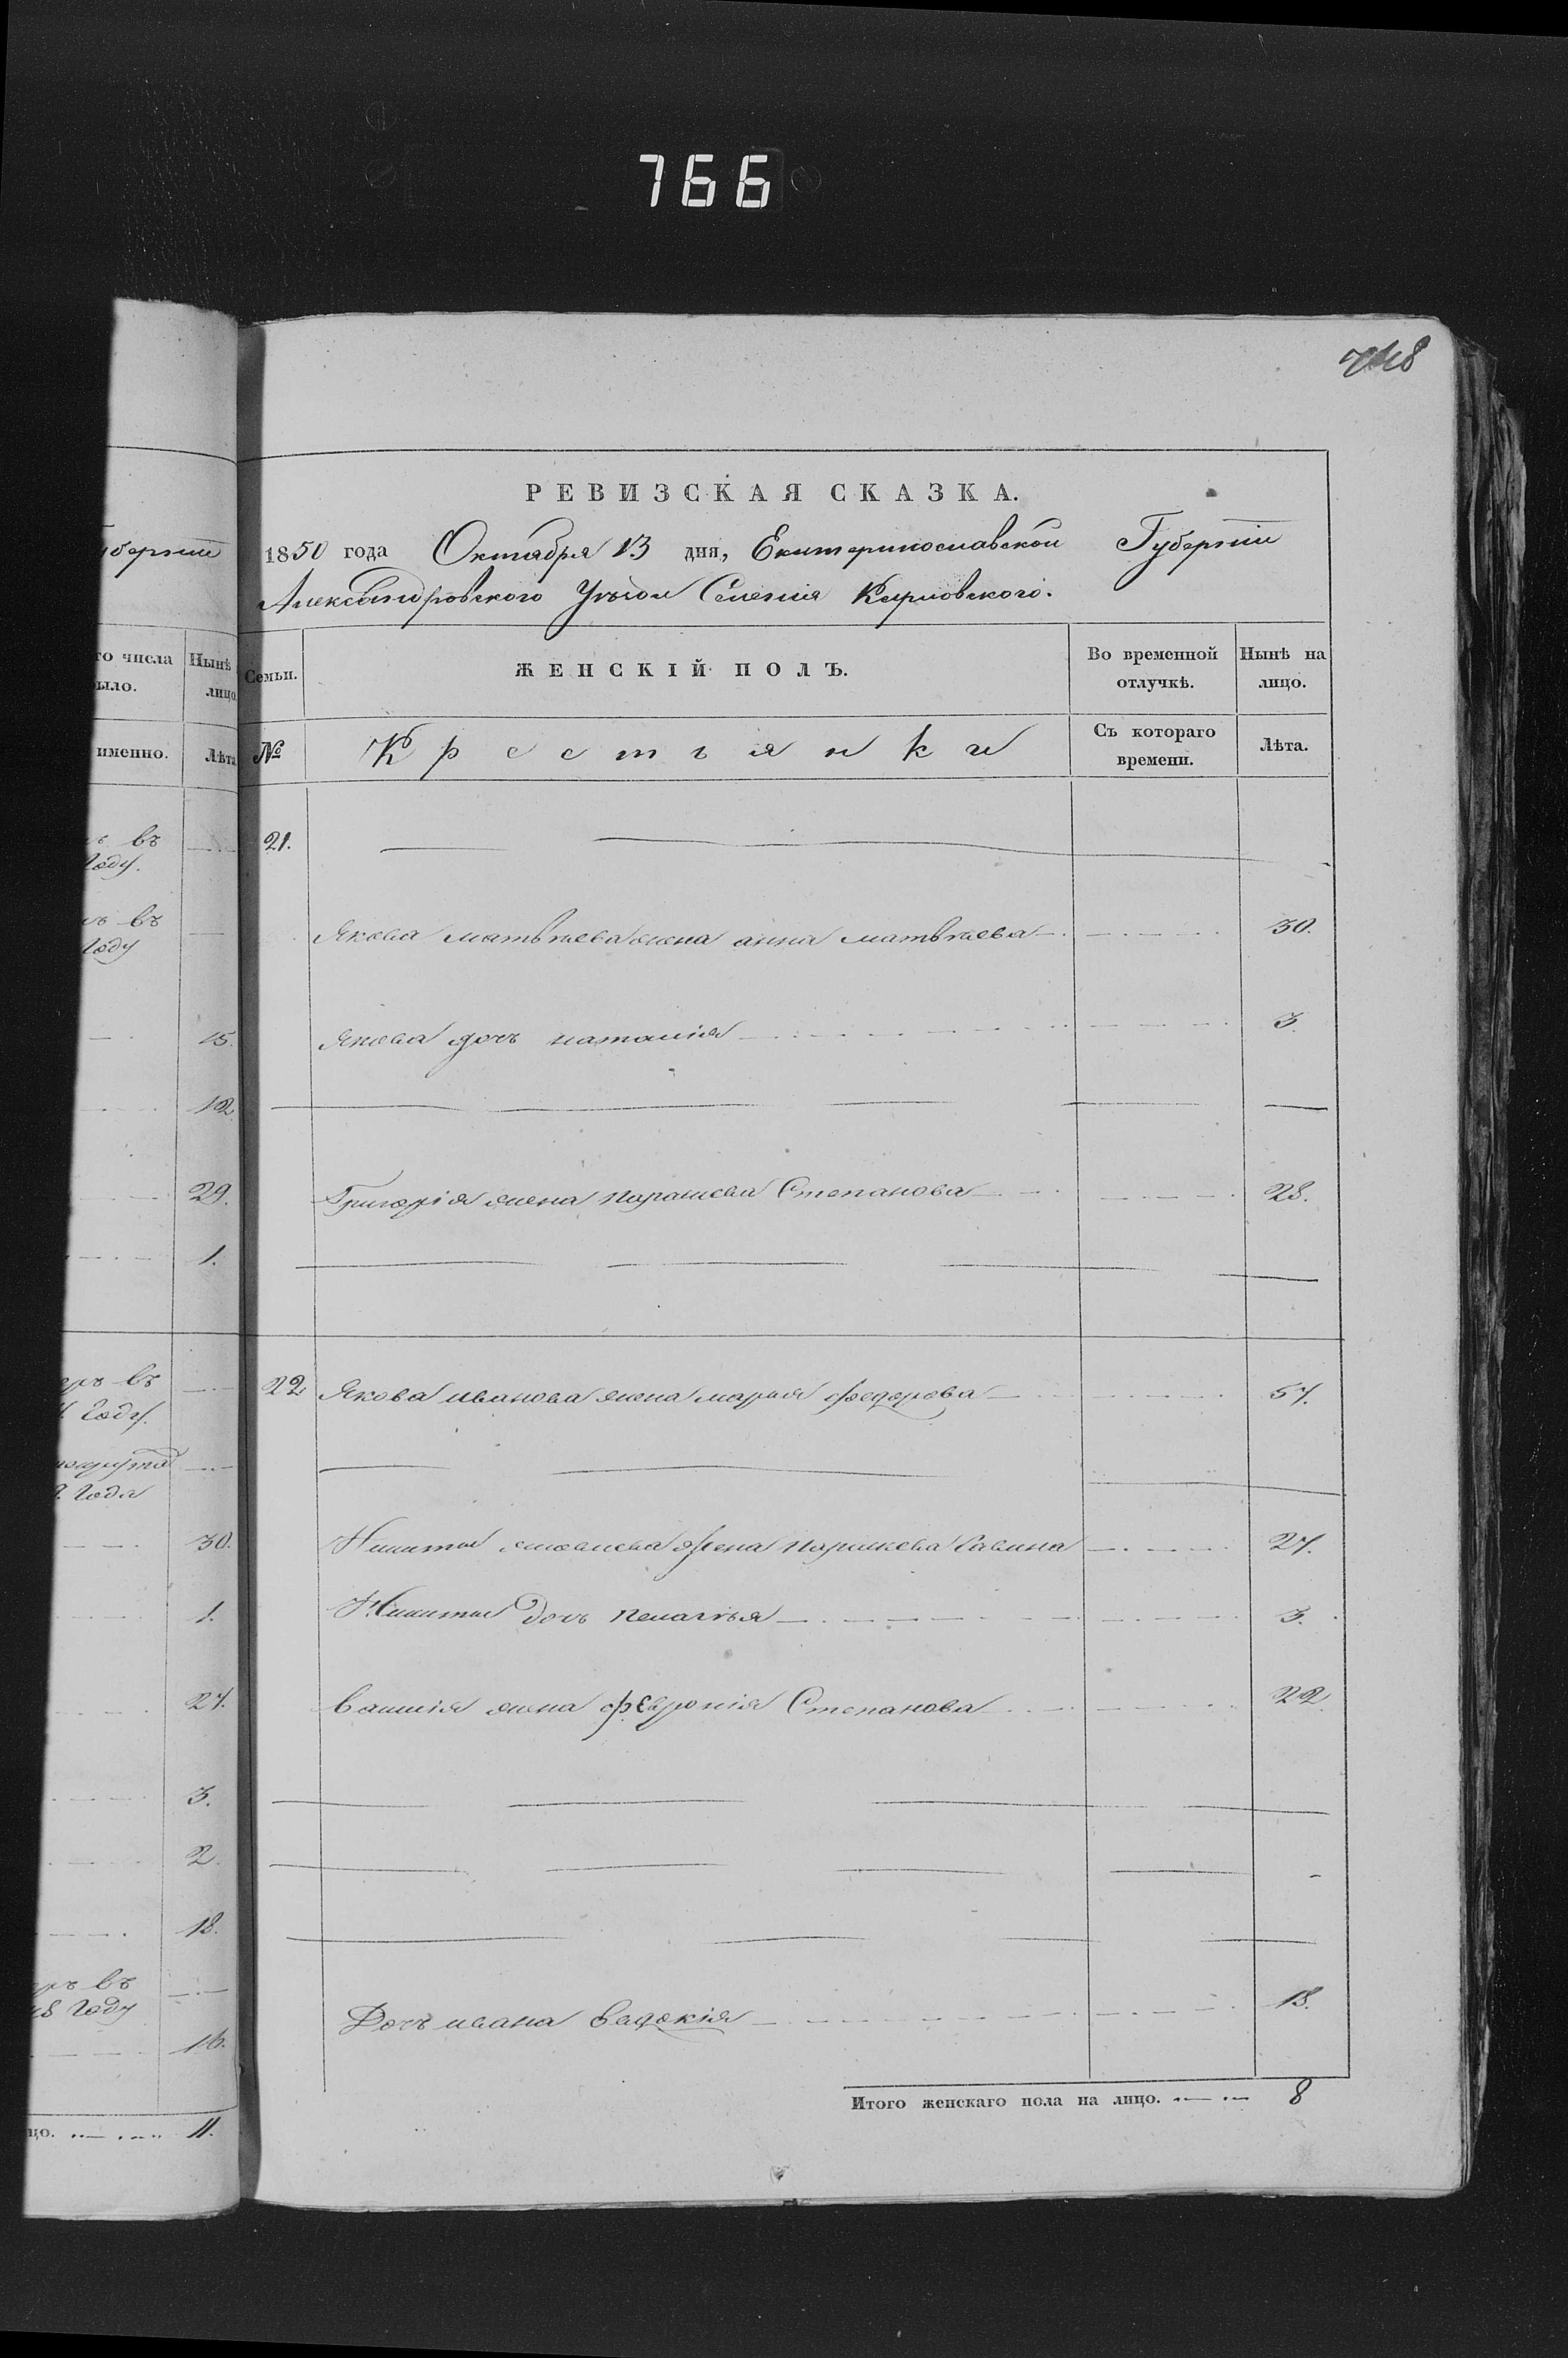 766
748
РЕВИЗСКАЯ СКАЗКА.
1850 года Октября 13 дня, Екатеринославской Губерніи
Александровского Уѣзда Селенія
Семьи.
ЖЕНСКІЙ ПОЛЪ.
Во временной отлучкѣ.
Нынѣ на лицо.
№
Крестьянки
Съ котораго времени.
Лѣта.
21.
Якова Матвѣева жена анна матвѣева 30.
Якова дочь наталія 3
Григорія жена параскева Степанова 28.
22 Якова иванова жена марья федорова 57.
Никиты жена параскева Савина 27.
Никиты дочь пелагѣя 3.
василія жена феѵронія Степанова 22
Дочь ивана Евдокія 18.
Итого женскаго пола на лицо. 8
уберніи
го числа
ыло.
Нынѣ
лицо
именно.
Лѣта
въ
Году.
въ
Году
15.
12
29.
1.
въ
Году.
Года
30.
1.
27.
3.
2.
18.
въ
Году
16.
цо. 11.